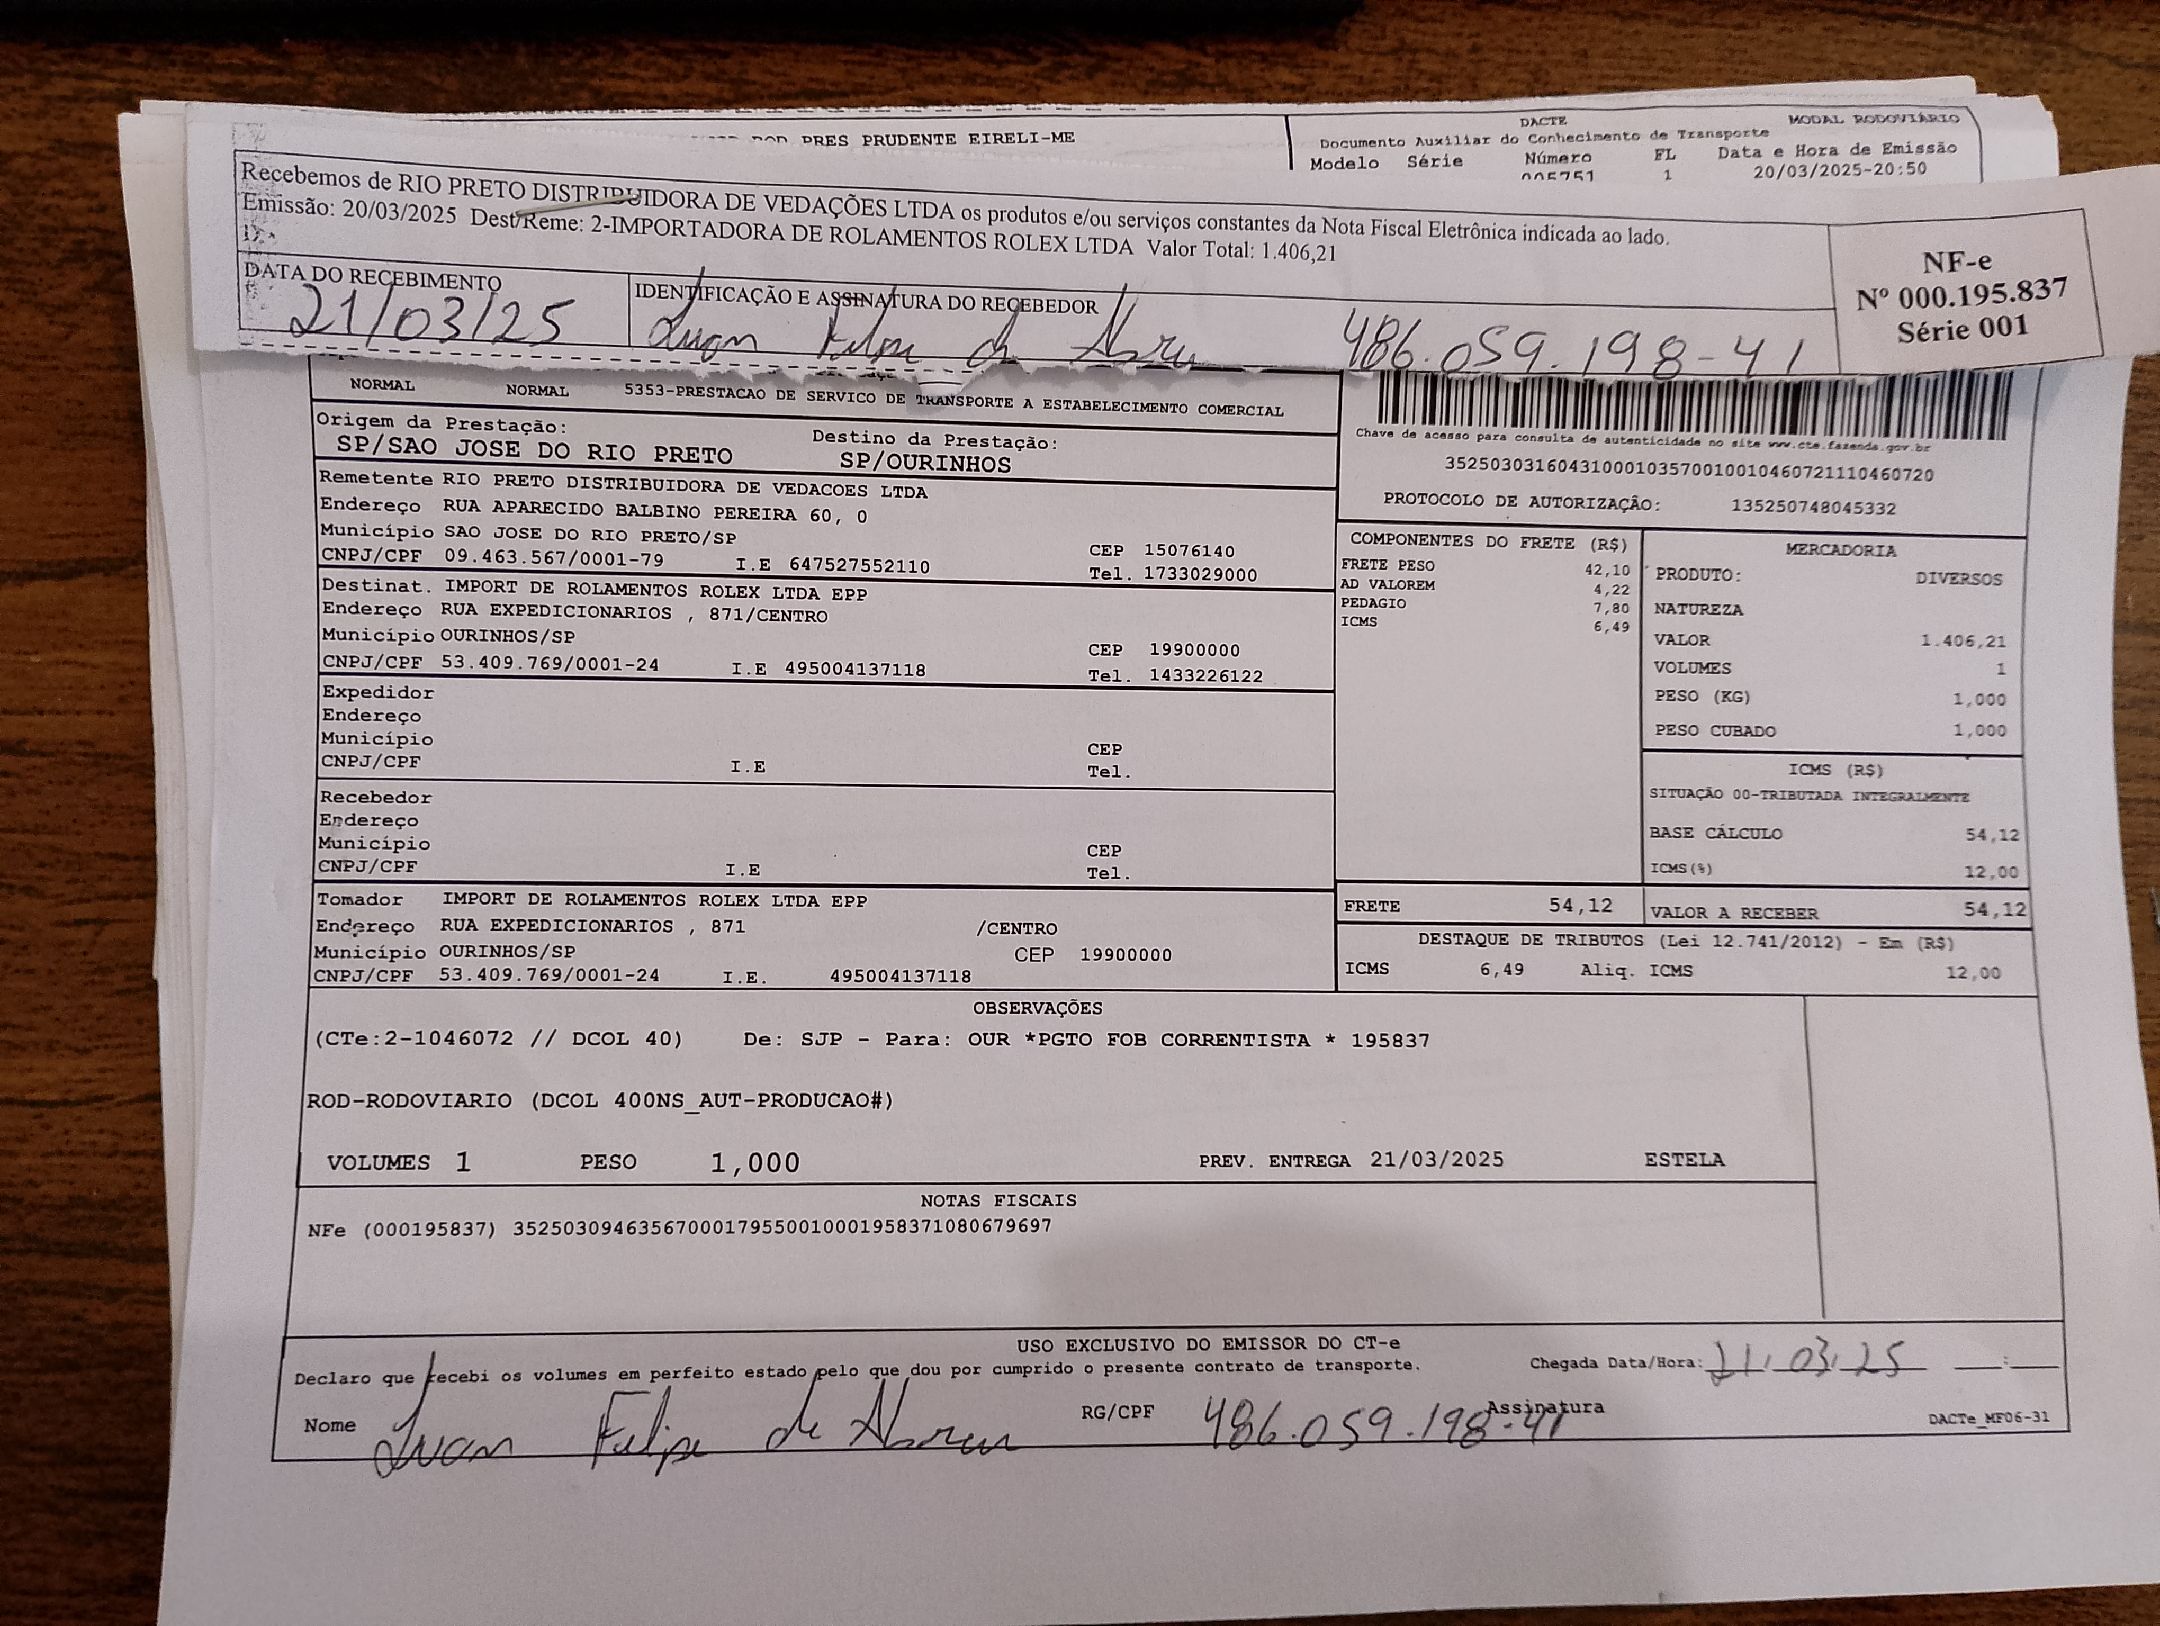 PRES PRUDENTE EIRELI-ME
DACTE
MODAL RODOVIÁRIO
Documento Auxiliar do Conhecimento de Transporte
Modelo Série Número FL Data e Hora de Emissão
1 20/03/2025-20:50
Recebemos de RIO PRETO DISTRIBUIDORA DE VEDAÇÕES LTDA os produtos e/ou serviços constantes da Nota Fiscal Eletrônica indicada ao lado.
Emissão: 20/03/2025 Dest/Reme: 2-IMPORTADORA DE ROLAMENTOS ROLEX LTDA Valor Total: 1.406,21
DATA DO RECEBIMENTO
21/03/25
IDENTIFICAÇÃO E ASSINATURA DO RECEBEDOR
Luan Felipe de Abreu 486.059.198-41
NF-e
Nº 000.195.837
Série 001
NORMAL NORMAL 5353-PRESTACAO DE SERVICO DE TRANSPORTE A ESTABELECIMENTO COMERCIAL
Origem da Prestação:
SP/SAO JOSE DO RIO PRETO
Destino da Prestação:
SP/OURINHOS
Chave de acesso para consulta de autenticidade no site www.cte.fazenda.gov.br
35250303160431000103570010010460721110460720
PROTOCOLO DE AUTORIZAÇÃO: 135250748045332
Remetente RIO PRETO DISTRIBUIDORA DE VEDACOES LTDA
Endereço RUA APARECIDO BALBINO PEREIRA 60, 0
Município SAO JOSE DO RIO PRETO/SP
CEP 15076140
CNPJ/CPF 09.463.567/0001-79 I.E 647527552110 Tel. 1733029000
Destinat. IMPORT DE ROLAMENTOS ROLEX LTDA EPP
Endereço RUA EXPEDICIONARIOS , 871/CENTRO
Município OURINHOS/SP
CEP 19900000
CNPJ/CPF 53.409.769/0001-24 I.E 495004137118 Tel. 1433226122
Expedidor
Endereço
Município CEP
CNPJ/CPF I.E Tel.
Recebedor
Endereço
Município CEP
CNPJ/CPF I.E Tel.
Tomador IMPORT DE ROLAMENTOS ROLEX LTDA EPP
Endereço RUA EXPEDICIONARIOS , 871 /CENTRO
Município OURINHOS/SP CEP 19900000
CNPJ/CPF 53.409.769/0001-24 I.E. 495004137118
COMPONENTES DO FRETE (R$)
FRETE PESO 42,10
AD VALOREM 4,22
PEDAGIO 7,80
ICMS 6,49
MERCADORIA
PRODUTO: DIVERSOS
NATUREZA
VALOR 1.406,21
VOLUMES 1
PESO (KG) 1,000
PESO CUBADO 1,000
ICMS (R$)
SITUAÇÃO 00-TRIBUTADA INTEGRALMENTE
BASE CÁLCULO 54,12
ICMS(%) 12,00
FRETE 54,12 VALOR A RECEBER 54,12
DESTAQUE DE TRIBUTOS (Lei 12.741/2012) - Em (R$)
ICMS 6,49 Aliq. ICMS 12,00
OBSERVAÇÕES
(CTe:2-1046072 // DCOL 40) De: SJP - Para: OUR *PGTO FOB CORRENTISTA * 195837
ROD-RODOVIARIO (DCOL 400NS_AUT-PRODUCAO#)
VOLUMES 1 PESO 1,000 PREV. ENTREGA 21/03/2025 ESTELA
NOTAS FISCAIS
NFe (000195837) 35250309463567000179550010001958371080679697
USO EXCLUSIVO DO EMISSOR DO CT-e
Declaro que recebi os volumes em perfeito estado pelo que dou por cumprido o presente contrato de transporte. Chegada Data/Hora: 21.03.25 __:__
Nome Luan Felipe de Abreu RG/CPF 486.059.198-41 Assinatura
DACTe_MF06-31